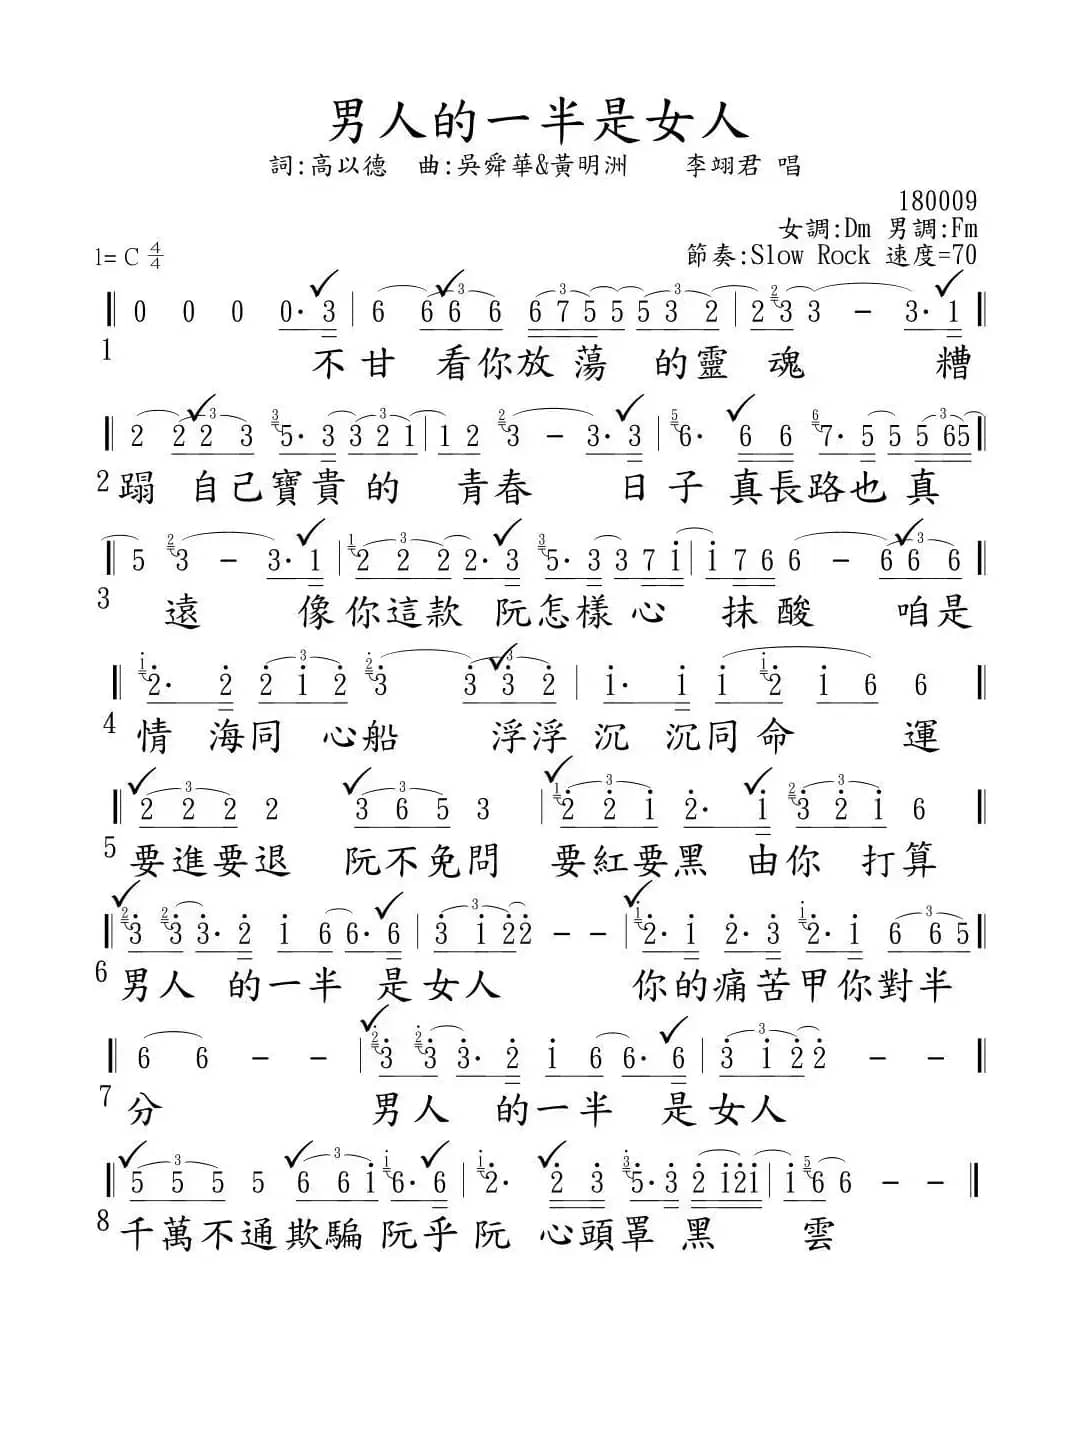 男人的一半是女人
詞:高以德 曲:吳舜華&黃明洲 李翊君 唱
180009
女調:Dm 男調:Fm
1= C 4/4 節奏:Slow Rock 速度=70
0 0 0 0· 3 | 6 6 6 6 6 7 5 5 5 3 2 | 2 3 3 - 3· 1
1 不甘 看你放蕩 的靈 魂 糟
2 2 2 3 5· 3 3 2 1 | 1 2 3 - 3· 3 | 6· 6 6 7· 5 5 5 6 5
2 蹋 自己寶貴的 青春 日子 真長路也真
5 3 - 3· 1 | 2 2 2 2· 3 5· 3 3 7 i | i 7 6 6 - 6 6 6
3 遠 像你這款 阮怎樣心 抹酸 咱是
2· 2 2 i 2 3 3 3 2 | i· i i 2 i 6 6
4 情 海同 心船 浮浮 沉 沉同命 運
2 2 2 2 3 6 5 3 | 2 2 i 2· i 3 2 i 6
5 要進要退 阮不免問 要紅要黑 由你 打算
3 3 3· 2 i 6 6· 6 | 3 i 2 2 - - | 2· i 2· 3 2· i 6 6 5
6 男人 的一半 是女人 你的痛苦甲你對半
6 6 - - | 3 3 3· 2 i 6 6· 6 | 3 i 2 2 - -
7 分 男人 的一半 是女人
5 5 5 5 6 6 i 6· 6 | 2· 2 3 5· 3 2 i 2 i | i 6 6 - -
8 千萬不通欺騙 阮乎阮 心頭罩 黑 雲